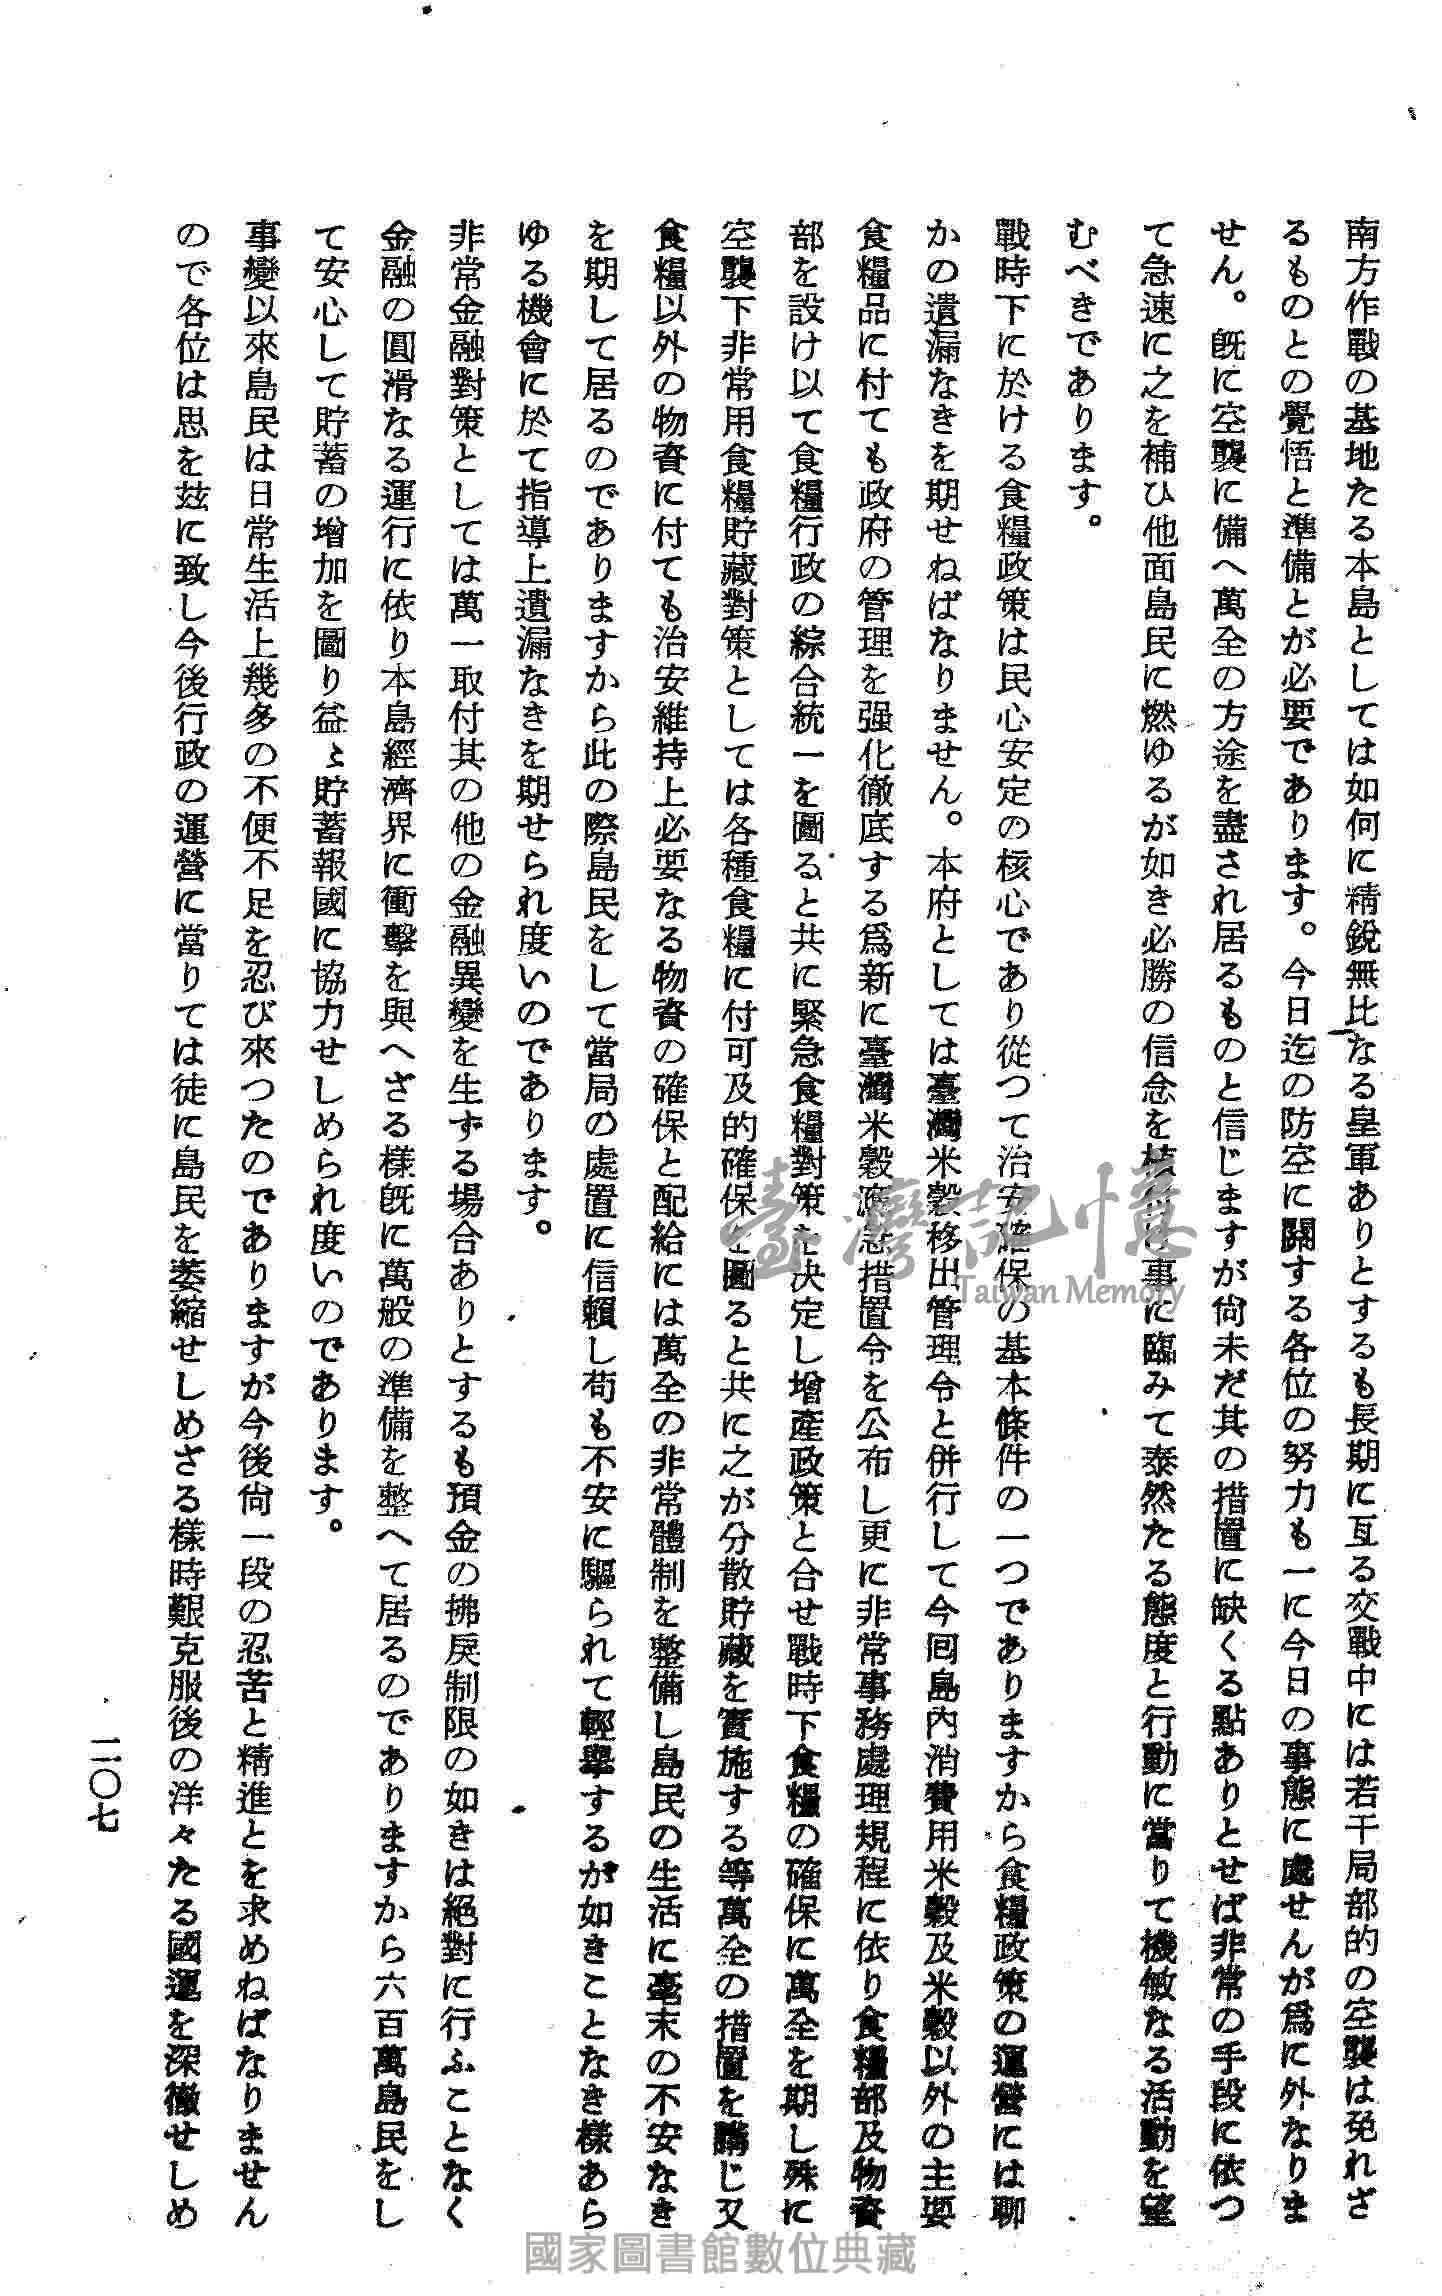 南方作戰の基地たる本島としては如何に精銳無比なる皇軍ありとするも長期に亙る交戰中には若干局部的の空襲は免れざ
るものとの覺悟と準備とが必要であります。今日迄の防空に關する各位の努力も一に今日の事態に處せんが爲に外なりま
せん。旣に空襲に備へ萬全の方途を盡され居るものと信じますが尙未だ其の措置に缺くる點ありとせば非常の手段に依つ
て急速に之を補ひ他面島民に燃ゆるが如き必勝の信念を植付け事に臨みて泰然たる態度と行動に當りて機敏なる活動を望
むべきであります。
戰時下に於ける食糧政策は民心安定の核心であり從つて治安確保の基本條件の一つでありますから食糧政策の運營には聊
かの遺漏なきを期せねばなりません。本府としては臺灣米穀移出管理令と併行して今回島內消費用米穀及米穀以外の主要
食糧品に付ても政府の管理を强化徹底する爲新に臺灣米穀應急措置令を公布し更に非常事務處理規程に依り食糧部及物資
部を設け以て食糧行政の綜合統一を圖ると共に緊急食糧對策を決定し增產政策と合せ戰時下食糧の確保に萬全を期し殊に
空襲下非常用食糧貯藏對策としては各種食糧に付可及的確保を圖ると共に之が分散貯藏を實施する等萬全の措置を講じ又
食糧以外の物資に付ても治安維持上必要なる物資の確保と配給には萬全の非常體制を整備し島民の生活に毫末の不安なき
を期して居るのでありますから此の際島民をして當局の處置に信賴し苟も不安に驅られて輕擧するが如きことなき樣あら
ゆる機會に於て指導上遺漏なきを期せられ度いのであります。
非常金融對策としては萬一取付其の他の金融異變を生ずる場合ありとするも預金の拂戾制限の如きは絕對に行ふことなく
金融の圓滑なる運行に依り本島經濟界に衝擊を與へざる樣旣に萬般の準備を整へて居るのでありますから六百萬島民をし
て安心して貯蓄の增加を圖り益〻貯蓄報國に協力せしめられ度いのであります。
事變以來島民は日常生活上幾多の不便不足を忍び來つたのでありますが今後尙一段の忍苦と精進とを求めねばなりません
ので各位は思を玆に致し今後行政の運營に當りては徒に島民を萎縮せしめざる樣時艱克服後の洋々たる國運を深徹せしめ
二〇七
臺灣記憶
Taiwan Memory
國家圖書館數位典藏